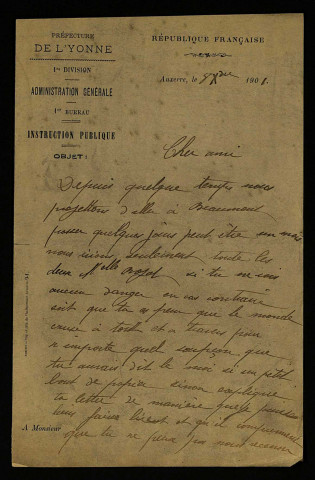 PRÉFECTURE
DE L'YONNE
1re DIVISION
ADMINISTRATION GÉNÉRALE
1er BUREAU
INSTRUCTION PUBLIQUE
OBJET :
RÉPUBLIQUE FRANÇAISE
Auxerre, le 1901.
Cher ami
Depuis quelque temps nous
projettons d'aller à Beaumont
passer quelques jours peut être un mois
nous irions seulement toute les
deux Melle si tu ne vois
aucun danger au cas contraire
soit que tu as peur que le monde
cause à tort et a travers pour
n importe quel soupçon que
tu aurais dit le moi si un petit
bout de papier sinon explique
ta lettre de manière que je puisse
faire et qu il comprennent
que tu ne peux pas nous recevoir
A Monsieur